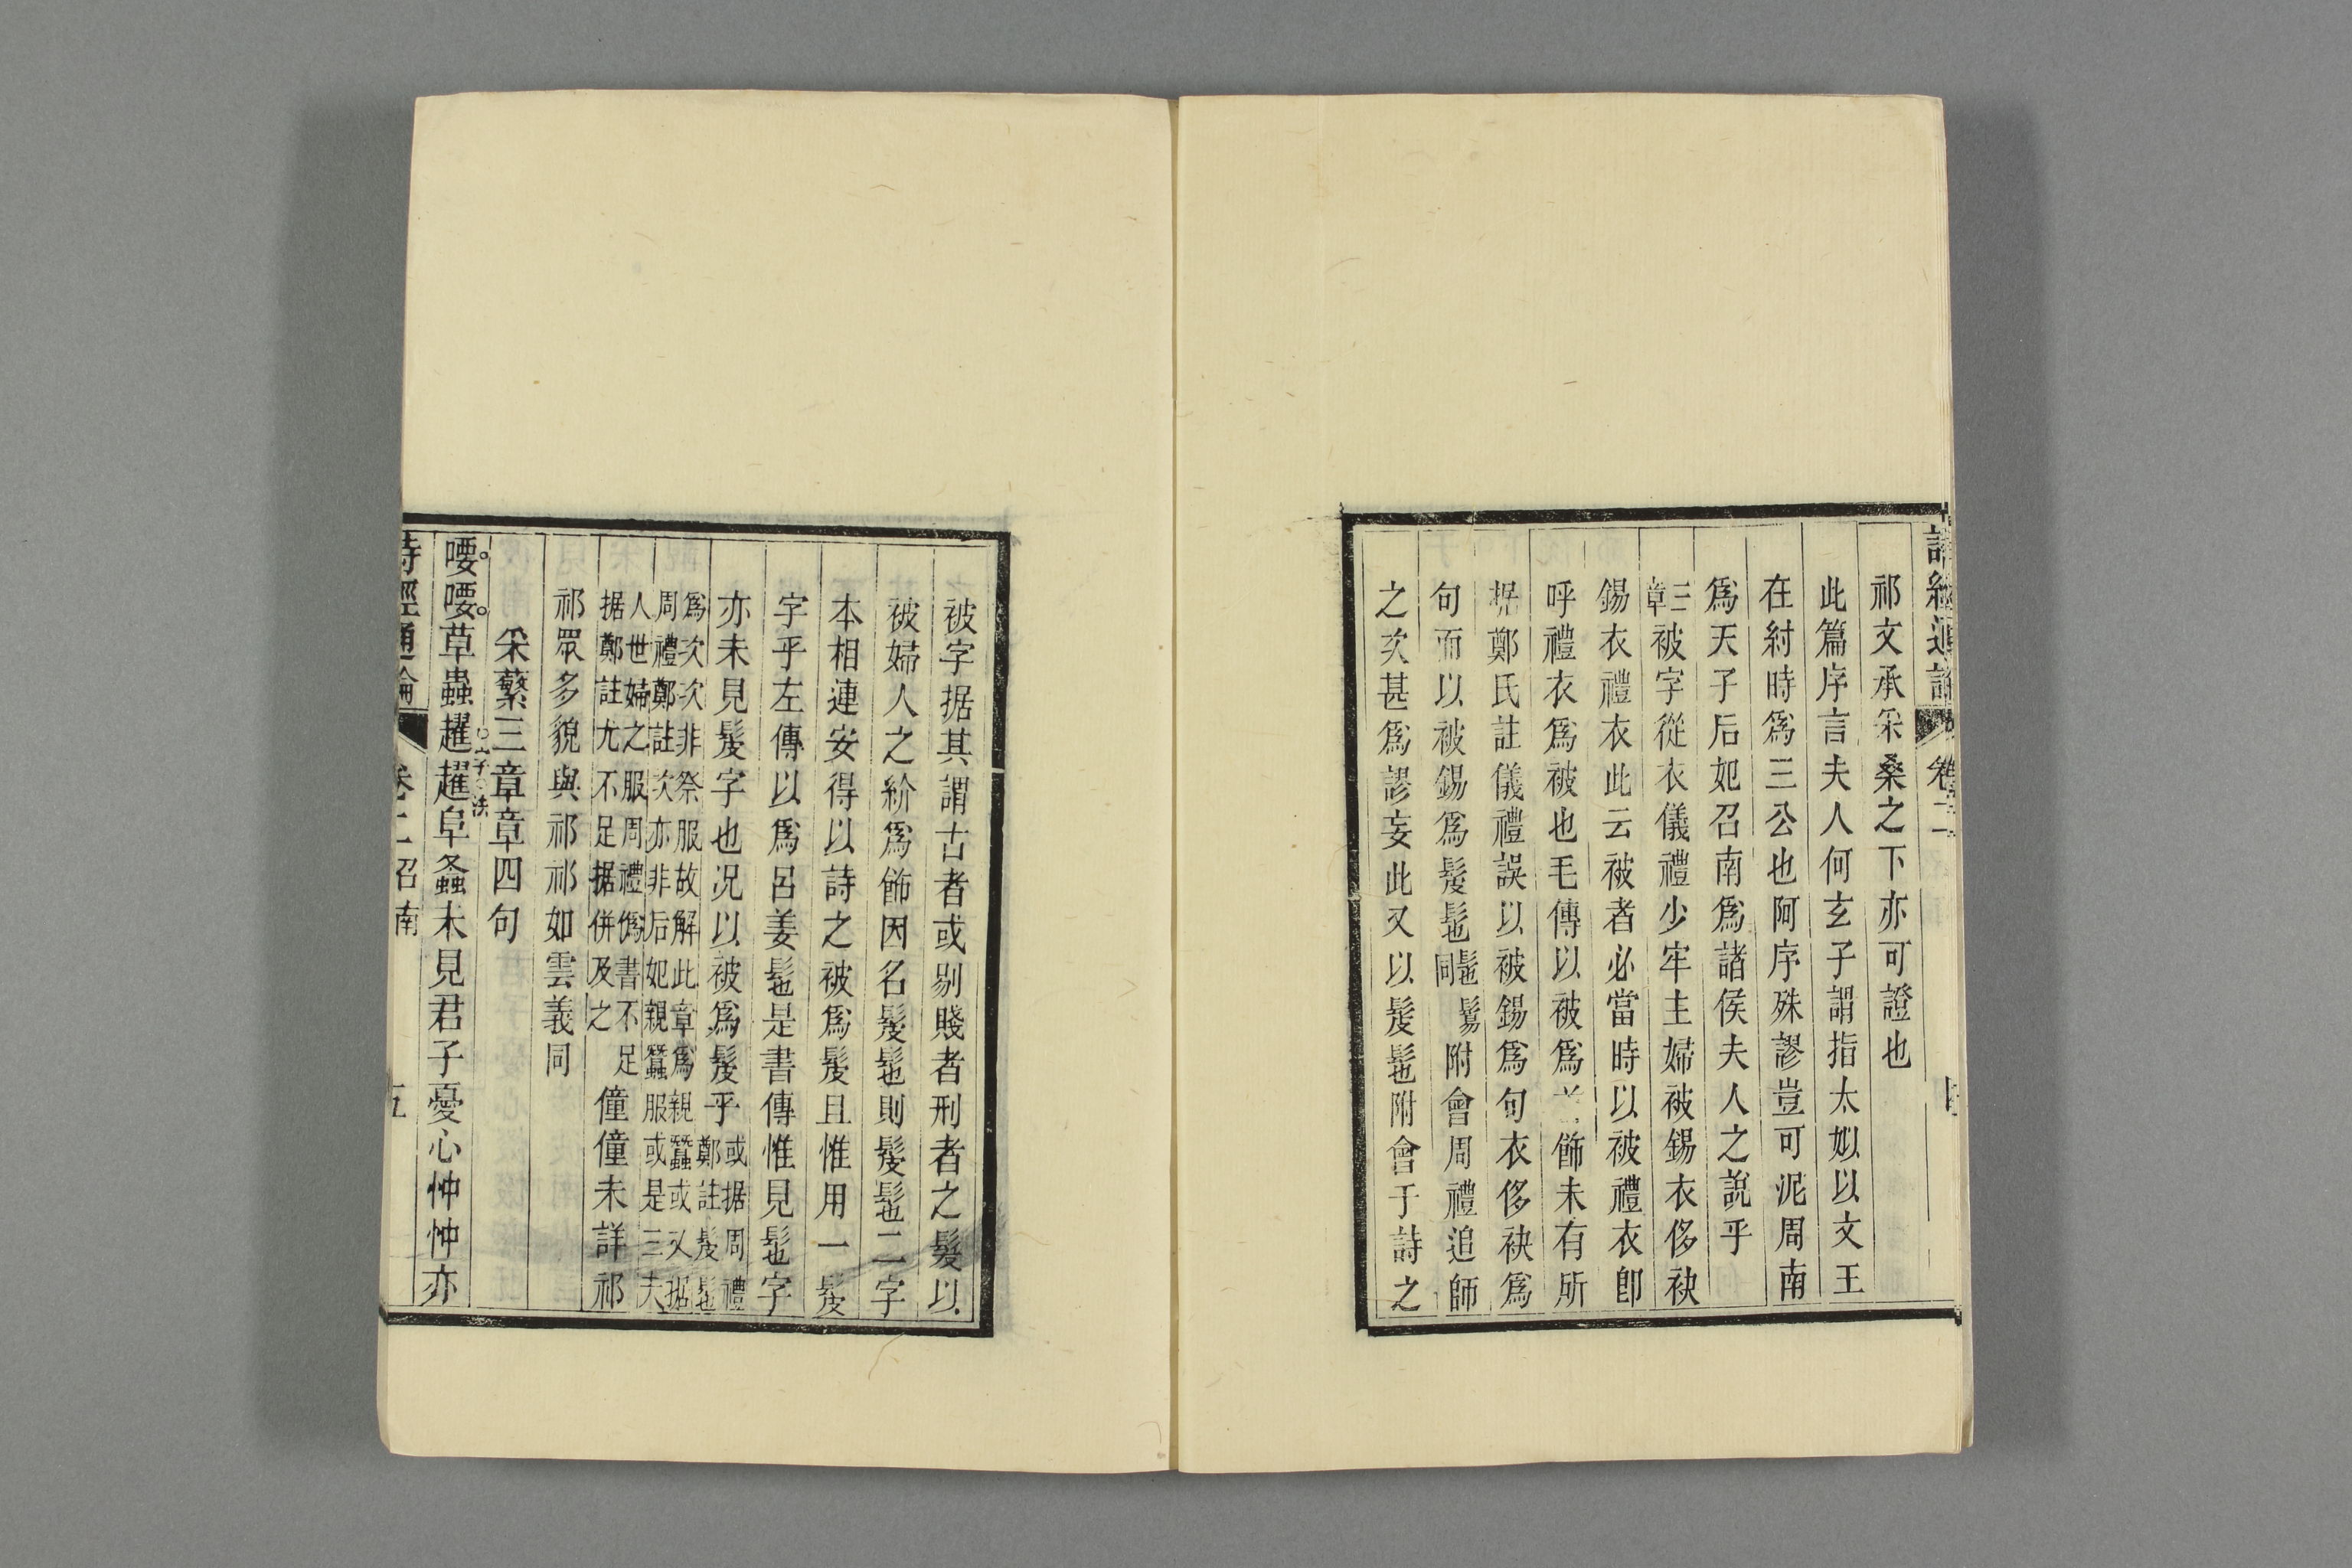 詩經通論 卷二
祁文承采桑之下亦可證也
此篇序言夫人何玄子謂指太姒以文王
在紂時爲三公也阿序殊謬豈可泥周南
爲天子后妃召南爲諸侯夫人之說乎
三章被字從衣儀禮少牢主婦被錫衣侈袂
錫衣禮衣此云被者必當時以被禮衣卽
呼禮衣爲被也毛傳以被爲首飾未有所
据鄭氏註儀禮誤以被錫爲句衣侈袂爲
句而以被錫爲髲髢髢鬄同附會周禮追師
之次甚爲謬妄此又以髲髢附會于詩之
被字据其謂古者或剔賤者刑者之髮以
被婦人之紒爲飾因名髲髢則髲髢二字
本相連安得以詩之被爲髲且惟用一髲
字乎左傳以爲呂姜髢是書傳惟見髢字
亦未見髲字也況以被爲髲乎或据周禮
鄭註髲髢
爲次次非祭服故解此章爲親蠶或又据
周禮鄭註次亦非后妃親蠶服或是三夫
人世婦之服周禮僞書不足
据鄭註尤不足据併及之僮僮未詳祁
祁眾多貌與祁祁如雲義同
采蘩三章章四句
喓喓草蟲趯趯阜螽未見君子憂心忡忡亦
詩經通論 卷二召南 五